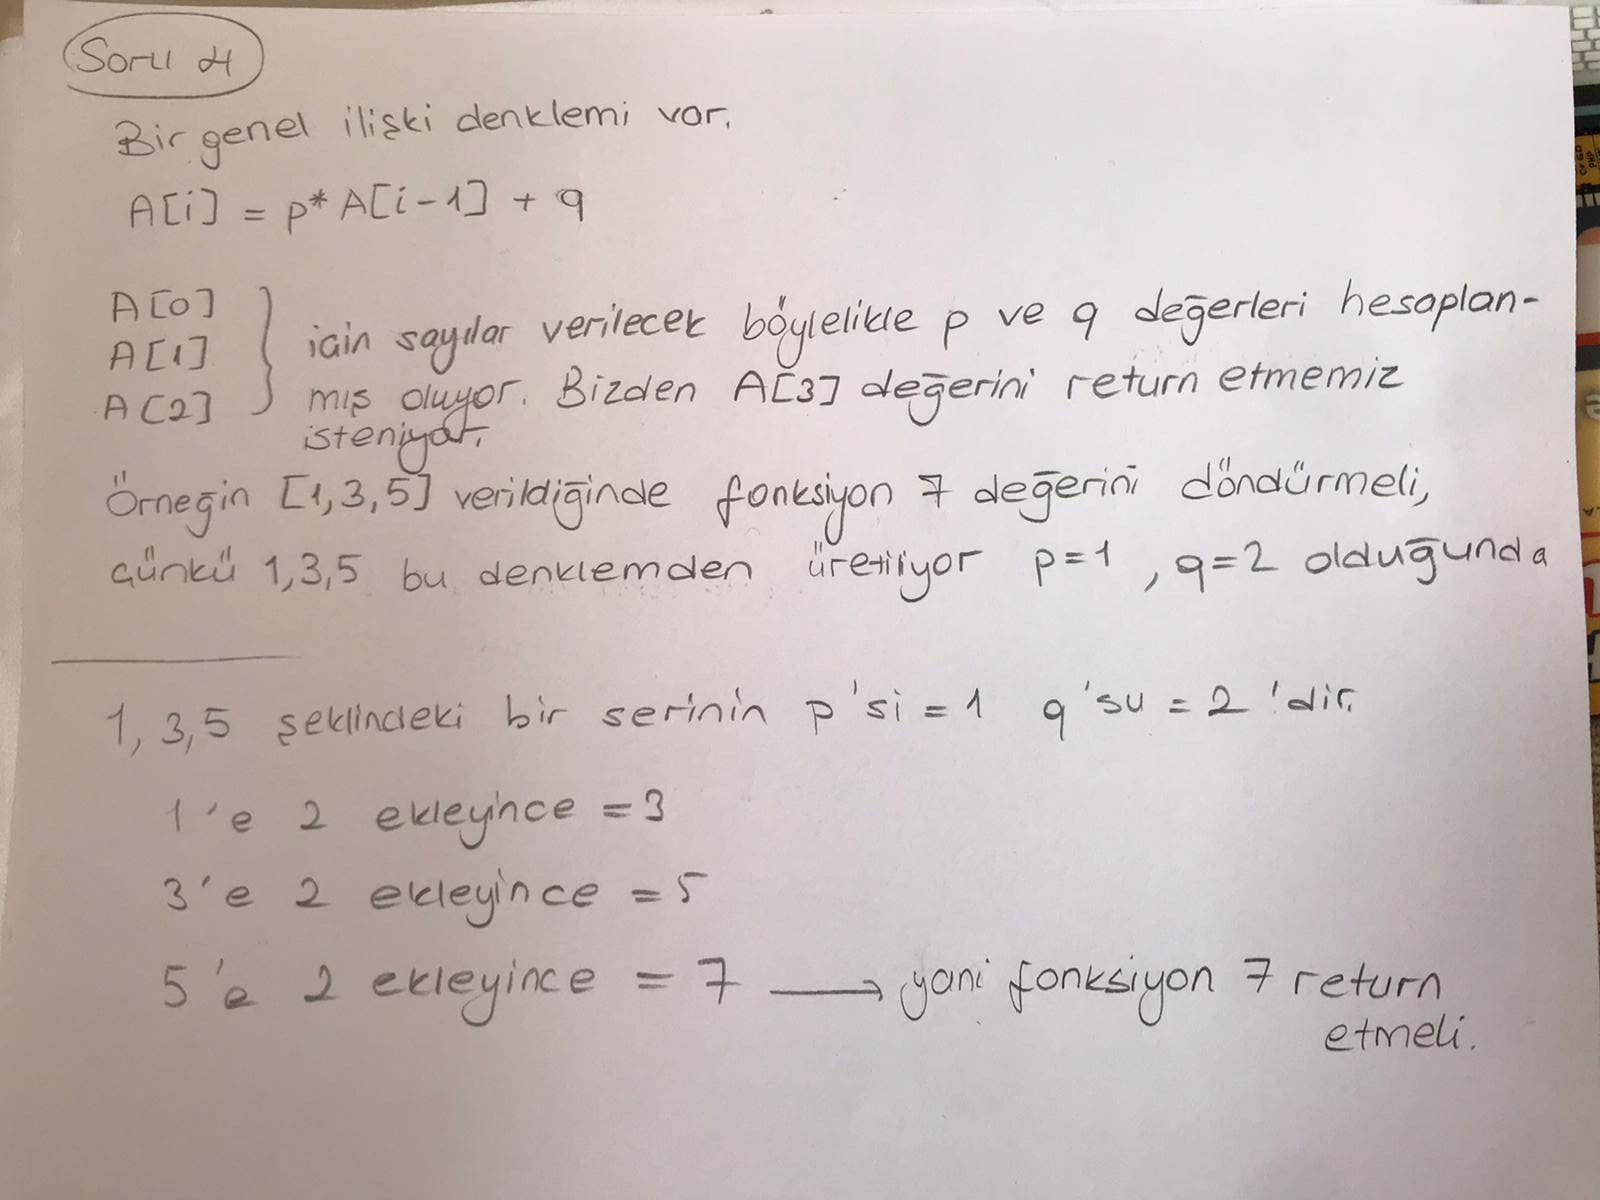 Soru 4
Bir genel ilişki denklemi var.
A[i] = p* A[i-1] + q
A[0]
A[1]
A[2]
için sayılar verilecek böylelikle p ve q değerleri hesaplan-
mış oluyor. Bizden A[3] değerini return etmemiz
isteniyor.
Örneğin [1,3,5] verildiğinde fonksiyon 7 değerini döndürmeli,
çünkü 1,3,5 bu denklemden üretiliyor p=1 , q=2 olduğunda
1, 3,5 şeklindeki bir serinin p'si = 1 q'su = 2 'dir.
1'e 2 ekleyince = 3
3'e 2 ekleyince = 5
5'e 2 ekleyince = 7 → yani fonksiyon 7 return
etmeli.